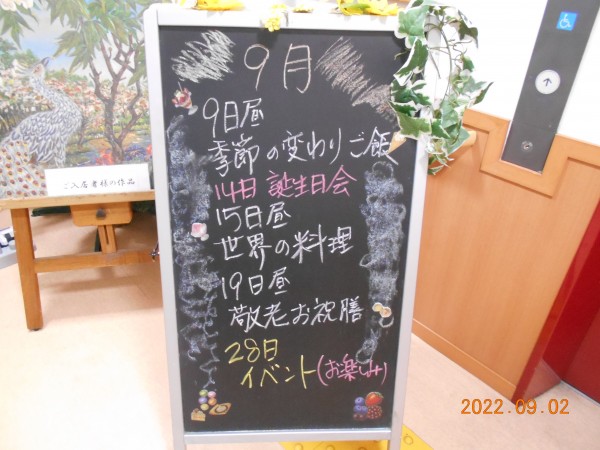 9月
9日昼
季節の変わりご飯
14日 誕生日会
15日昼
世界の料理
19日昼
敬老お祝膳
28日
イベント(お楽しみ)
ご入居者様の作品
2022.09.02